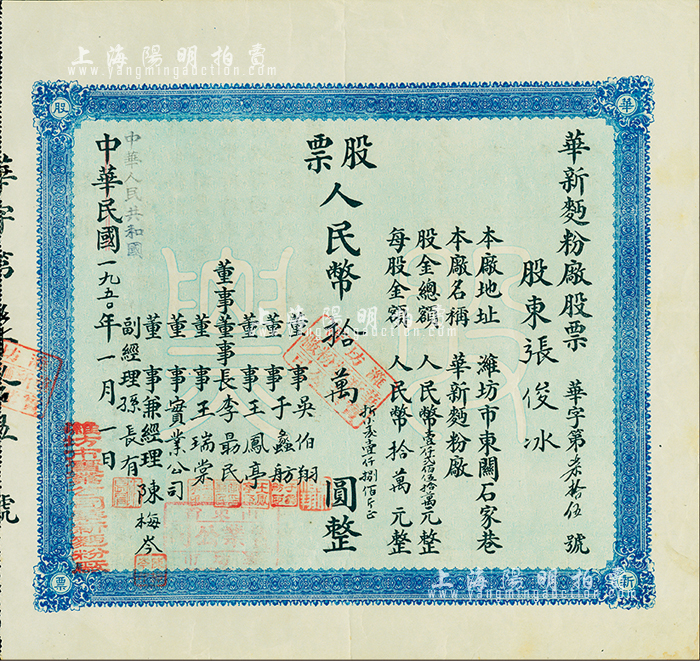 上海陽明拍賣
www.yangmingauction.com
華
股
新
票
華新麵粉廠股票 華字第叁拾伍號
股東張俊冰
本廠地址 濰坊市東關石家巷
本廠名稱 華新麵粉廠
股金總額 人民幣壹仟貳佰伍拾萬元整
每股金額 人民幣拾萬元整
折小麥壹仟捌佰斤正
股票人民幣拾萬圓整
董事吳伯翔
董事于蠡舫
董事王鳳亭
董事董事長李勗民
董事王瑞棠
董事實業公司
董事兼經理陳梅岑
副經理孫長有
中華人民共和國
中華民國一九五〇年一月一日
股票
華字第
號
上海陽明拍賣
www.yangmingauction.com